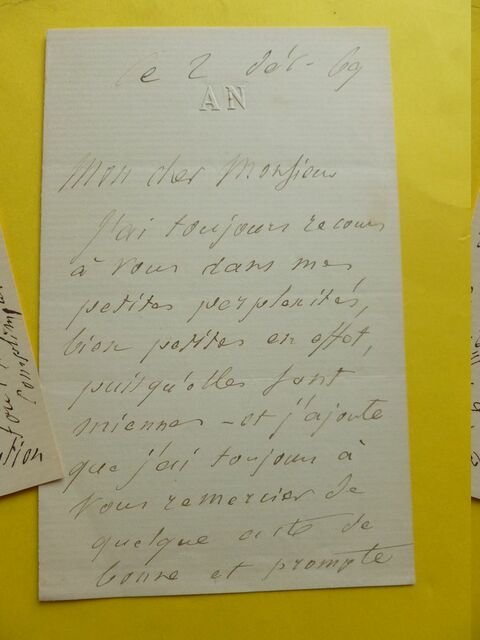 le 2 Déc - 69
AN
Mon cher Monsieur
J'ai toujours recours
à vous dans mes
petites perplexités,
bien petites en effet,
puisqu'elles sont
miennes - et j'ajoute
que j'ai toujours à
vous remercier de
quelque acte de
bonne et prompte